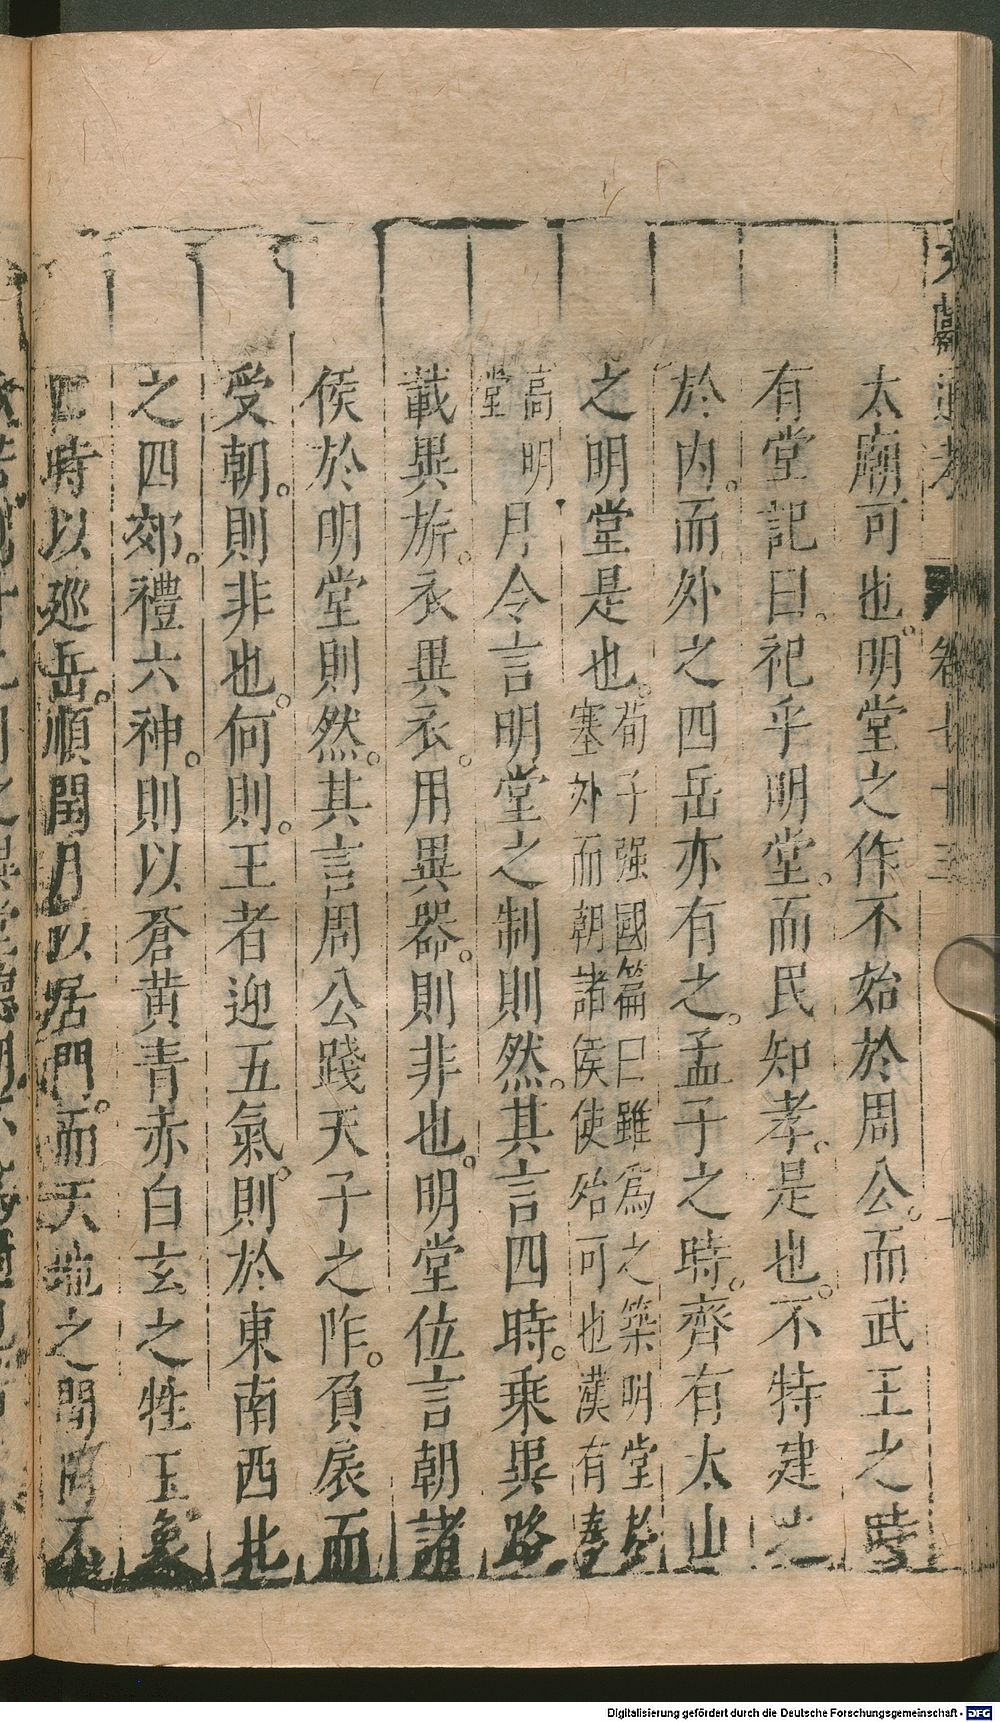 通考 卷七十三
太廟可也明堂之作不始於周公而武王之時
有堂記曰祀乎明堂而民知孝是也不特建之
於内而外之四岳亦有之孟子之時齊有太山
之明堂是也荀子强國篇曰雖爲之築明堂於
塞外而朝諸侯使殆可也漢有奉
高明
堂
月令言明堂之制則然其言四時乘異路
載異旂衣異衣用異器則非也明堂位言朝諸
侯於明堂則然其言周公踐天子之阼負扆而
受朝則非也何則王者迎五氣則於東南西北
之四郊禮六神則以蒼黄青赤白玄之牲玉象
時以巡岳順閏月以居門而天地之間不
Digitalisierung gefördert durch die Deutsche Forschungsgemeinschaft - DFG